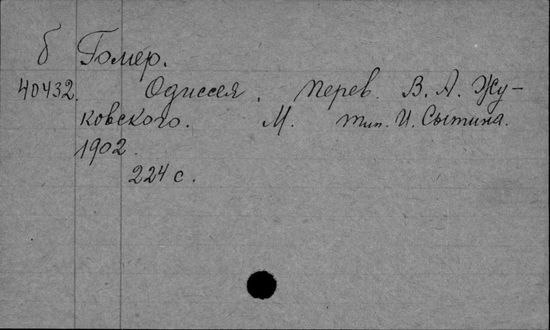 б Гомер.
40432. Одиссея. Перев. В. А. Жу-
ковского. М. тип. И. Сытина.
1902.
224 с.